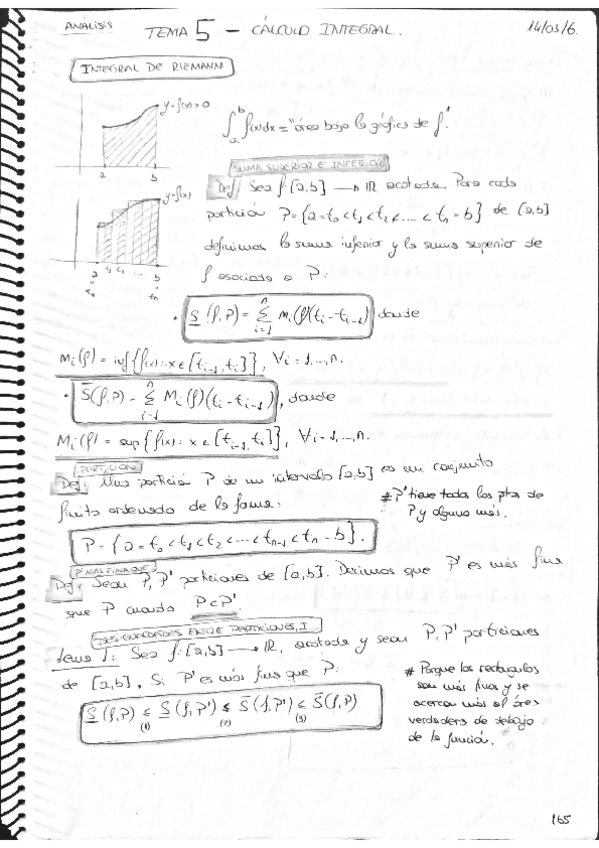 ANÁLISIS
TEMA 5 – CÁLCULO INTEGRAL.
14/03/16.
INTEGRAL DE RIEMANN
y=f(x)>0
a b
∫_a^b f(x)dx = "área bajo la gráfica de f".
SUMA SUPERIOR E INFERIOR
y=f(x)
Def/ Sea f:[a,b] → ℝ acotada. Para cada
partición P={a=t₀<t₁<t₂<...<tₙ=b} de [a,b]
definimos la suma inferior y la suma superior de
f asociada a P:
a t₁ t₂ ... b
t₀ tₙ
· S̲(f,P) = Σ_{i=1}^n mᵢ(f)(tᵢ-tᵢ₋₁) donde
mᵢ(f) = inf{f(x): x∈[tᵢ₋₁,tᵢ]}, ∀i=1,...,n.
· S̄(f,P) = Σ_{i=1}^n Mᵢ(f)(tᵢ-tᵢ₋₁), donde
Mᵢ(f) = sup{f(x): x∈[tᵢ₋₁,tᵢ]}, ∀i=1,...,n.
PARTICIÓN
Def/ Una partición P de un intervalo [a,b] es un conjunto
finito ordenado de la forma:
# P' tiene todos los ptos de
P y alguno más.
P={a=t₀<t₁<t₂<...<tₙ₋₁<tₙ=b}.
P' MÁS FINA QUE P
Def/ Sean P, P' particiones de [a,b]. Decimos que P' es más fina
que P cuando P⊂P'
DESIGUALDADES ENTRE PARTICIONES, I
Lema 1: Sea f:[a,b] → ℝ, acotada y sean P, P' particiones
de [a,b]. Si P' es más fina que P:
S̲(f,P) ≤ S̲(f,P') ≤ S̄(f,P') ≤ S̄(f,P)
(1) (2) (3)
# Porque los rectángulos
son más finos y se
acercan más al área
verdadera de debajo
de la función.
165